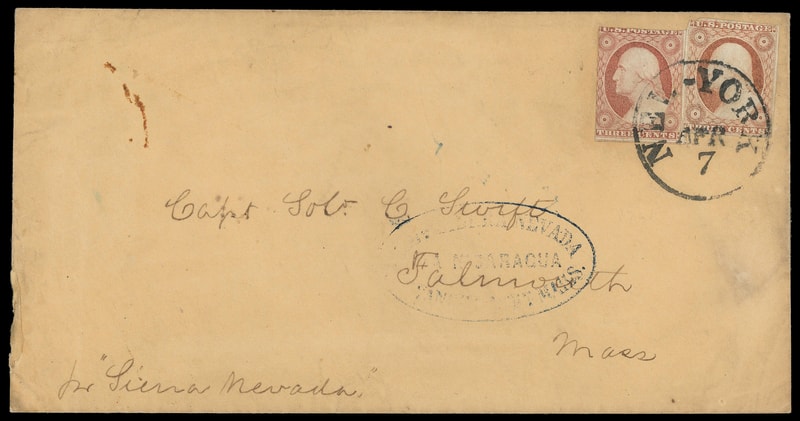 U.S. POSTAGE
THREE CENTS
U.S. POSTAGE
CENTS
NEW-YORK
APR
7
Capt Solo. C Swift
NEVADA
VIA NICARAGUA
MAILS.
Falmouth
Mass
pr "Sierra Nevada"